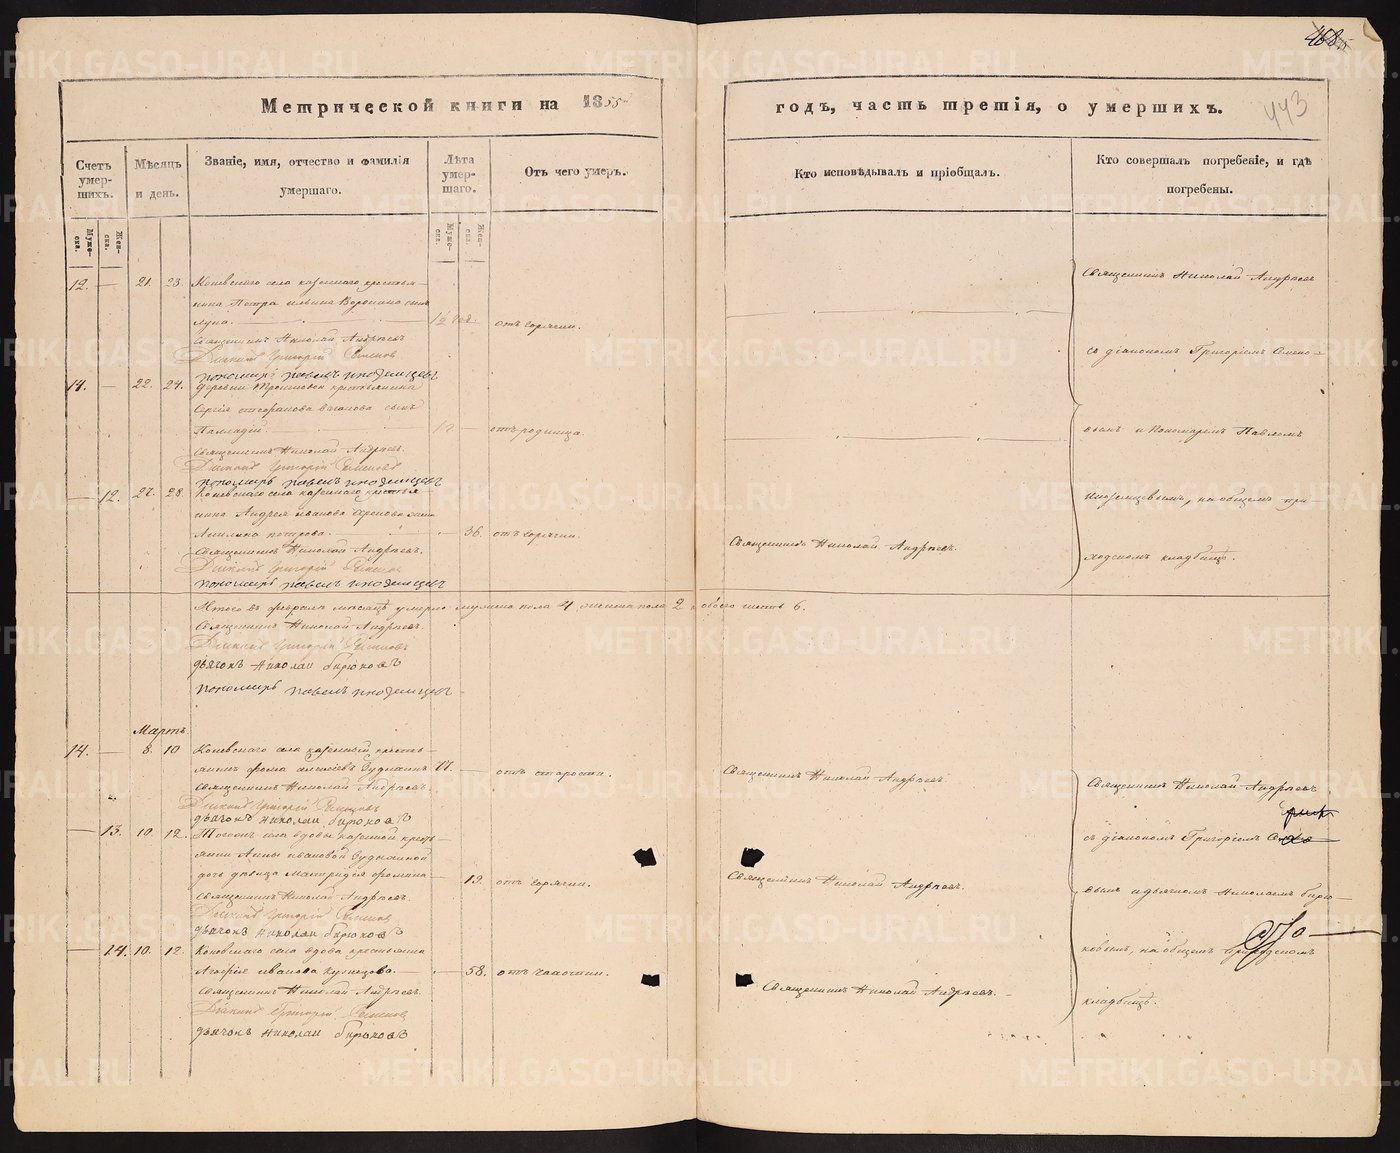 468
443
Метрической книги на 1855
годъ, часть третія, о умершихъ.
Счетъ умер-шихъ.
Мѣсяцъ и день.
Званіе, имя, отчество и фамилія умершаго.
Лѣта умер-шаго.
Отъ чего умеръ.
Кто исповѣдывалъ и пріобщалъ.
Кто совершалъ погребеніе, и гдѣ погребены.
Муже-ска.
Жен-ска.
Муже-ска.
Жен-ска.
12. — 21. 23. Коневскаго села казеннаго крестья-
нина Петра Ильина Воронина сынъ
отъ горячки.
Священникъ Николай Андреевъ
Діаконъ Григорій Семеновъ
пономарь павелъ иноземцевъ
— 22. 24. деревни крестьянина
Сергія сынъ
Палладій отъ родимца.
Священникъ Николай Андреевъ.
Діаконъ Григорій Семеновъ
пономарь павелъ иноземцевъ
— 12. 27. 28. Коневскаго села казеннаго крестья-
нина Андрея Иванова жена
Акилина петрова. 36. отъ горячки.
Священникъ Николай Андреевъ.
Діаконъ Григорій Семеновъ
пономарь павелъ иноземцевъ
Священникъ Николай Андреевъ.
Священникъ Николай Андреевъ
съ діакономъ Григоріемъ Семено-
вымъ и Пономаремъ Павломъ
Иноземцевымъ, на общемъ при-
ходскомъ кладбищѣ.
Итого въ февралѣ мѣсяцѣ умерло мужска пола 4, женска пола 2 обоего шесть 6.
Священникъ Николай Андреевъ.
Діаконъ Григорій Семеновъ
дьячокъ Николай бирюковъ
пономарь павелъ иноземцевъ
Мартъ.
14. — 8. 10 Коневскаго села казенный кресть-
янинъ фома алексѣевъ 77. — отъ старости.
Священникъ Николай Андреевъ.
Діаконъ Григорій Семеновъ
дьячокъ Николай бирюковъ
— 13. 10. 12. Тогожъ села вдовы казенной кресть-
янки Анны ивановой
дочь дѣвица Матридія 19. отъ горячки.
Священникъ Николай Андреевъ.
Діаконъ Григорій Семеновъ
дьячокъ Николай бирюковъ
— 14. 10. 12. Коневскаго села вдова крестьянка
Агафія иванова кузнецова. — 58. отъ чахотки.
Священникъ Николай Андреевъ.
Діаконъ Григорій Семеновъ
дьячокъ Николай бирюковъ
Священникъ Николай Андреевъ.
Священникъ Николай Андреевъ.
Священникъ Николай Андреевъ.
Священникъ Николай Андреевъ
съ діакономъ Григоріемъ
вымъ и дьячкомъ Николаемъ бирю-
ковымъ, на общемъ приходскомъ
кладбищѣ.
METRIKI.GASO-URAL.RU